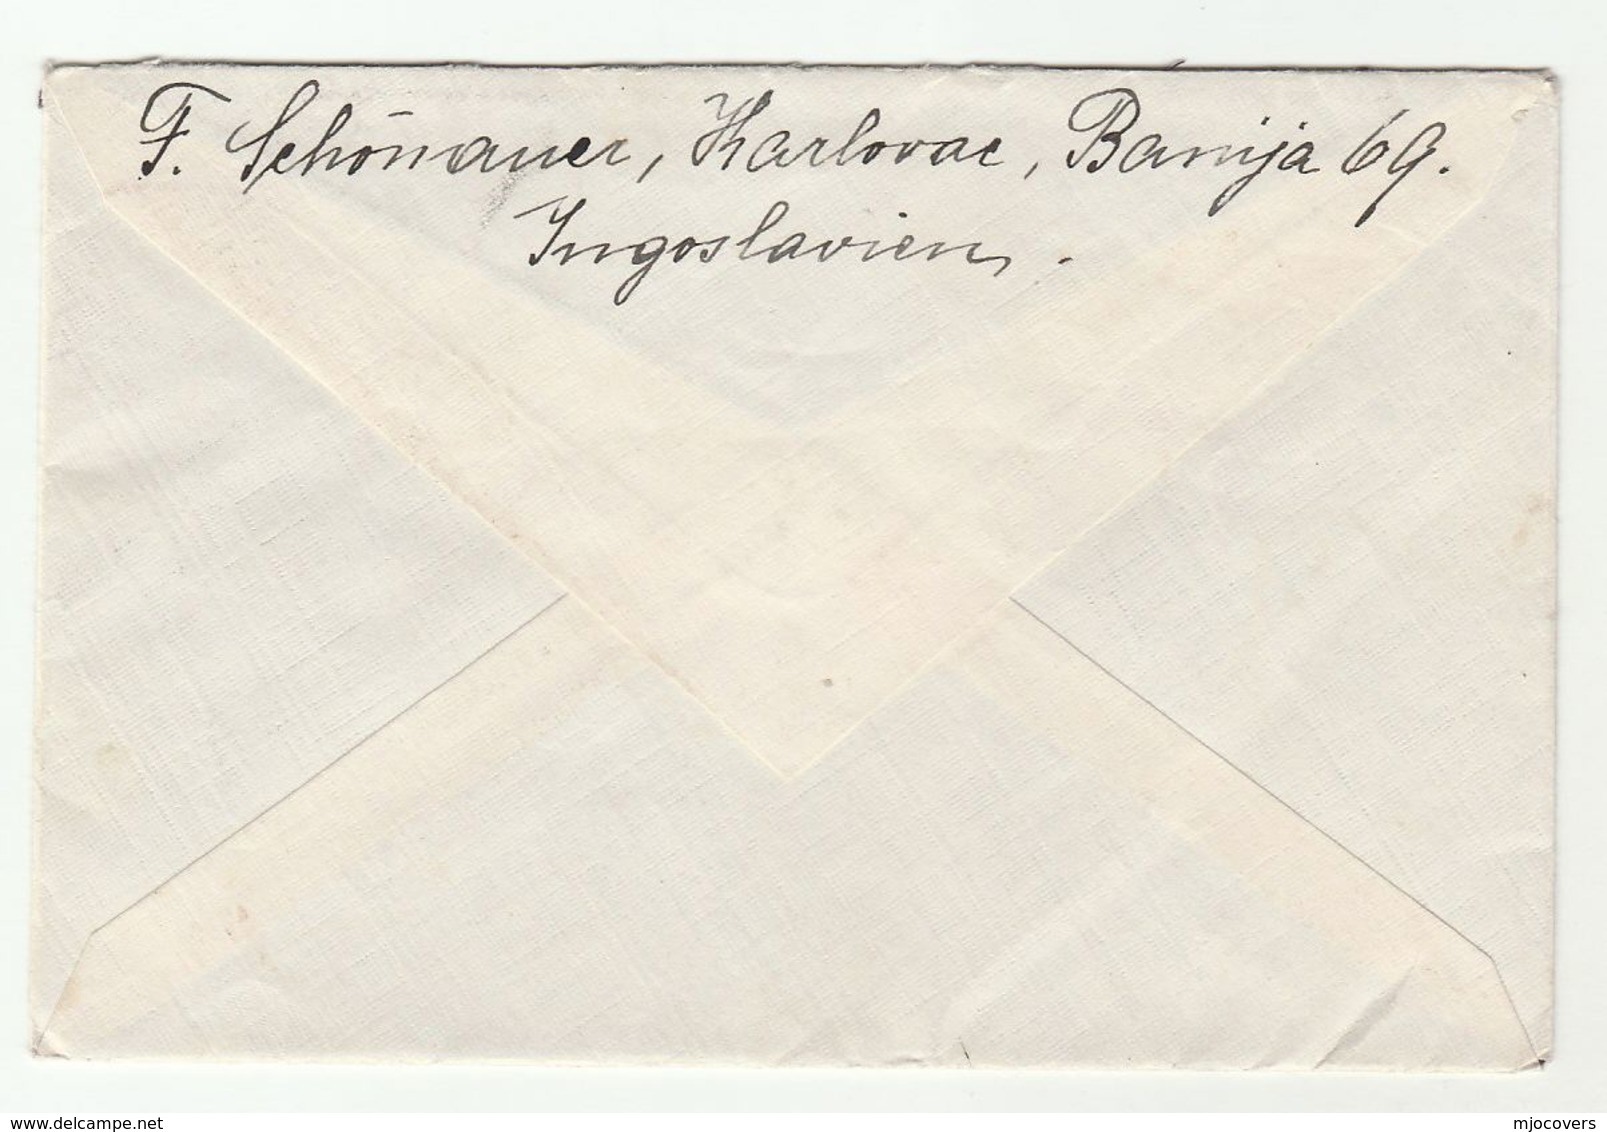 F. Schönauer, Karlovac, Banija 69.
Jugoslavien.
delcampe.net
mjocovers